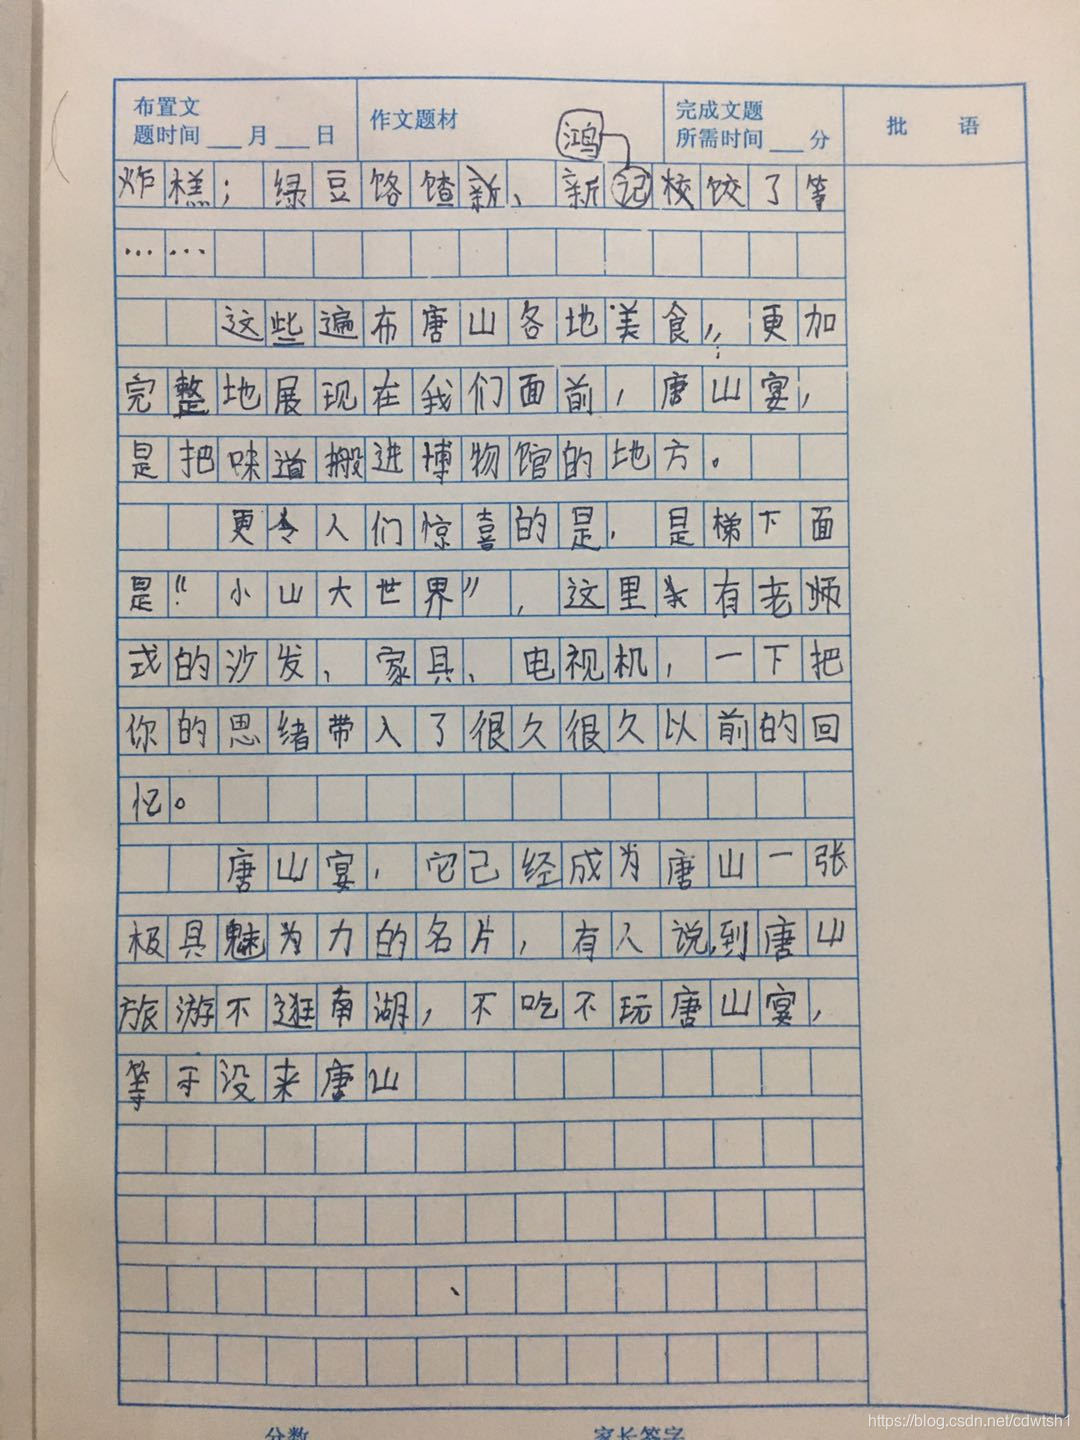 布置文
题时间 ___ 月 ___ 日
作文题材
完成文题
所需时间 ___ 分
批 语
鸿
炸糕；绿豆饹馇、新记饺了等
……
这些遍布唐山各地美食，更加
完整地展现在我们面前，唐山宴，
是把味道搬进博物馆的地方。
更令人们惊喜的是，是梯下面
是“小山大世界”，这里有老师
式的沙发、家具、电视机，一下把
你的思绪带入了很久很久以前的回
忆。
唐山宴，它己经成为唐山一张
极具魅为力的名片，有人说到唐山
旅游不逛南湖，不吃不玩唐山宴，
等于没来唐山
分数
家长签字
https://blog.csdn.net/cdwtsh1